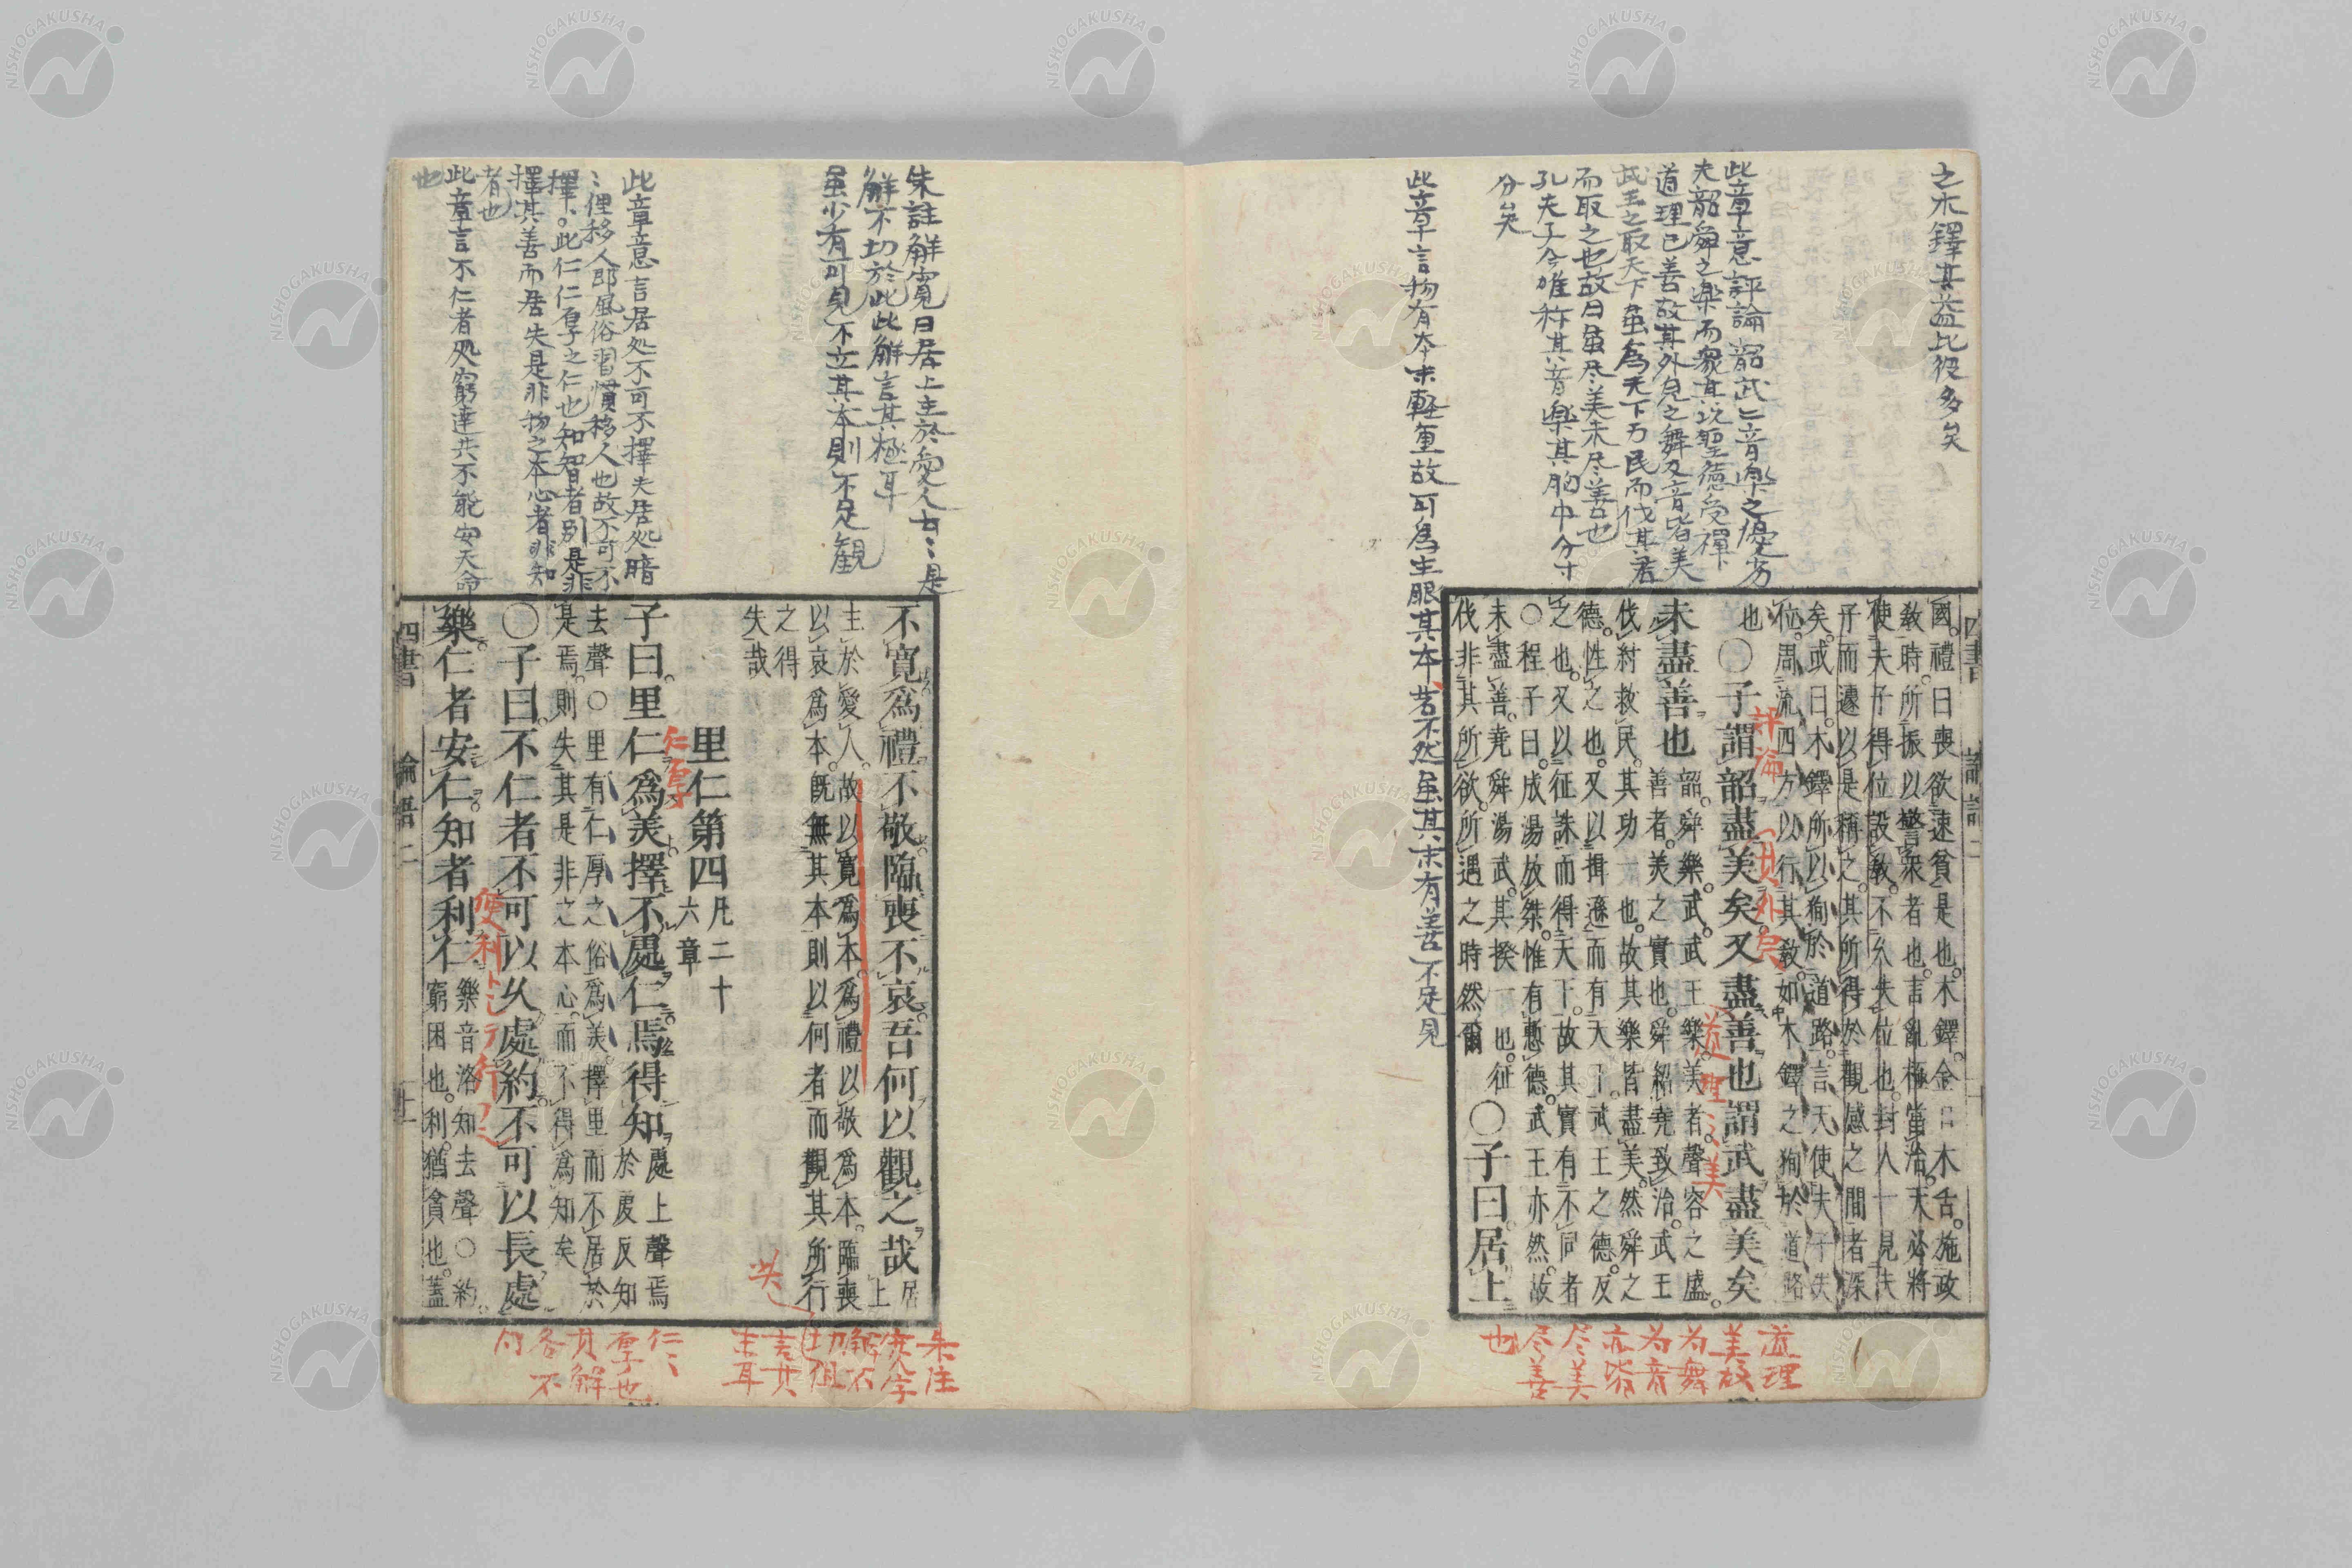 之木鐸其益比役多矣
此章意評論韶武二音樂之優劣
夫韶舜之樂而象其以聖德受禅
道理已善故其外見之舞及音皆美
武王之取天下虽為天下万民而伐其君
而取之也故曰虽尽美未尽善也
孔夫子今唯称其音樂其胸中分寸
分矣
此章言物有本末軽重故可為主眼其本若不然虽其末有善不足見
國。禮曰喪欲速貧是也。木鐸。金口木舌。施政
教時。所振以警衆者也。言亂極當治。天必將
使夫子得位設教。不久失位也。封人一見夫
子而遽以是稱之。其所得於觀感之間者深
矣。或曰。木鐸所以徇於道路。言天使夫子失
位。周流四方以行其教。如木鐸之徇於道路
也〇子謂韶盡美矣又盡善也謂武盡美矣
未盡善也韶。舜樂。武。武王樂。美者。聲容之盛。
善者。美之實也。舜紹堯致治。武王
伐紂救民。其功一也。故其樂皆盡美。然舜之
德。性之也。又以揖遜而有天下。武王之德。反
之也。又以征誅而得天下。故其實有不同者
〇程子曰。成湯放桀。惟有慙德。武王亦然。故
未盡善。堯舜湯武。其揆一也。征
伐非其所欲。所遇之時然爾〇子曰居上
評論
外見
道理之美
道理
美故
為舞
為音
亦皆
尽美
尽善
也
四書
論語二
朱註解寛曰居上主於愛人云々是
解不切於此此解言其極耳
虽少有可見不立其本則不足観
此章意言居処不可不擇夫居処暗
々俚移人即風俗習慣移人也故不可不
擇、。此仁仁厚之仁也知智者別是非
擇其善而居失是非物之本心者非知
者也
此章言不仁者処窮達共不能安天命
也
不寬爲禮不敬臨喪不哀吾何以觀之哉居上
主於愛人。故以寬爲本。爲禮以敬爲本。臨喪
以哀爲本。旣無其本。則以何者而觀其所行
之得
失哉
里仁第四凡二十
六章
子曰。里仁爲美擇不處仁焉得知處上聲焉
於虔反知
去聲〇里有仁厚之俗爲美。擇里而不居於
是焉。則失其是非之本心。而不得爲知矣
〇子曰。不仁者不可以久處約。不可以長處
樂。仁者安仁。知者利仁樂音洛知去聲〇約。
窮困也。利。猶貪也。蓋
仁厚
便利トシテ行フ之
朱注
寛字
解不
切但
言其
主耳
仁々
厚也
其解
各不
同
四書
論語二